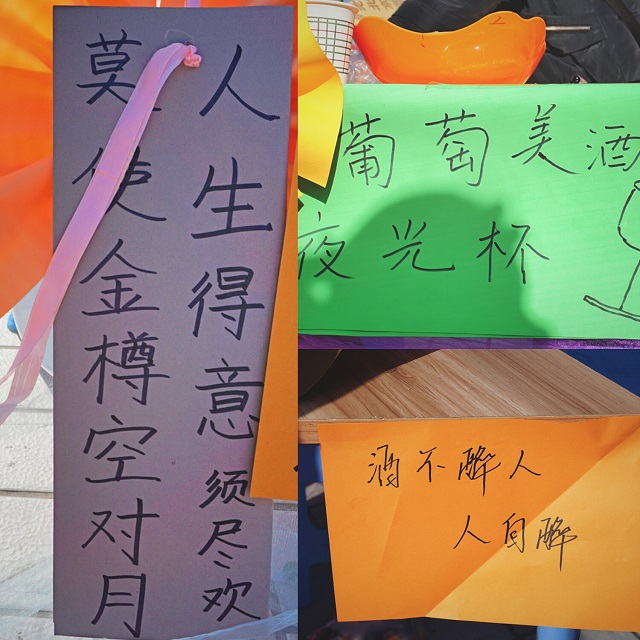 人生得意须尽欢
莫使金樽空对月
葡萄美酒
夜光杯
酒不醉人
人自醉